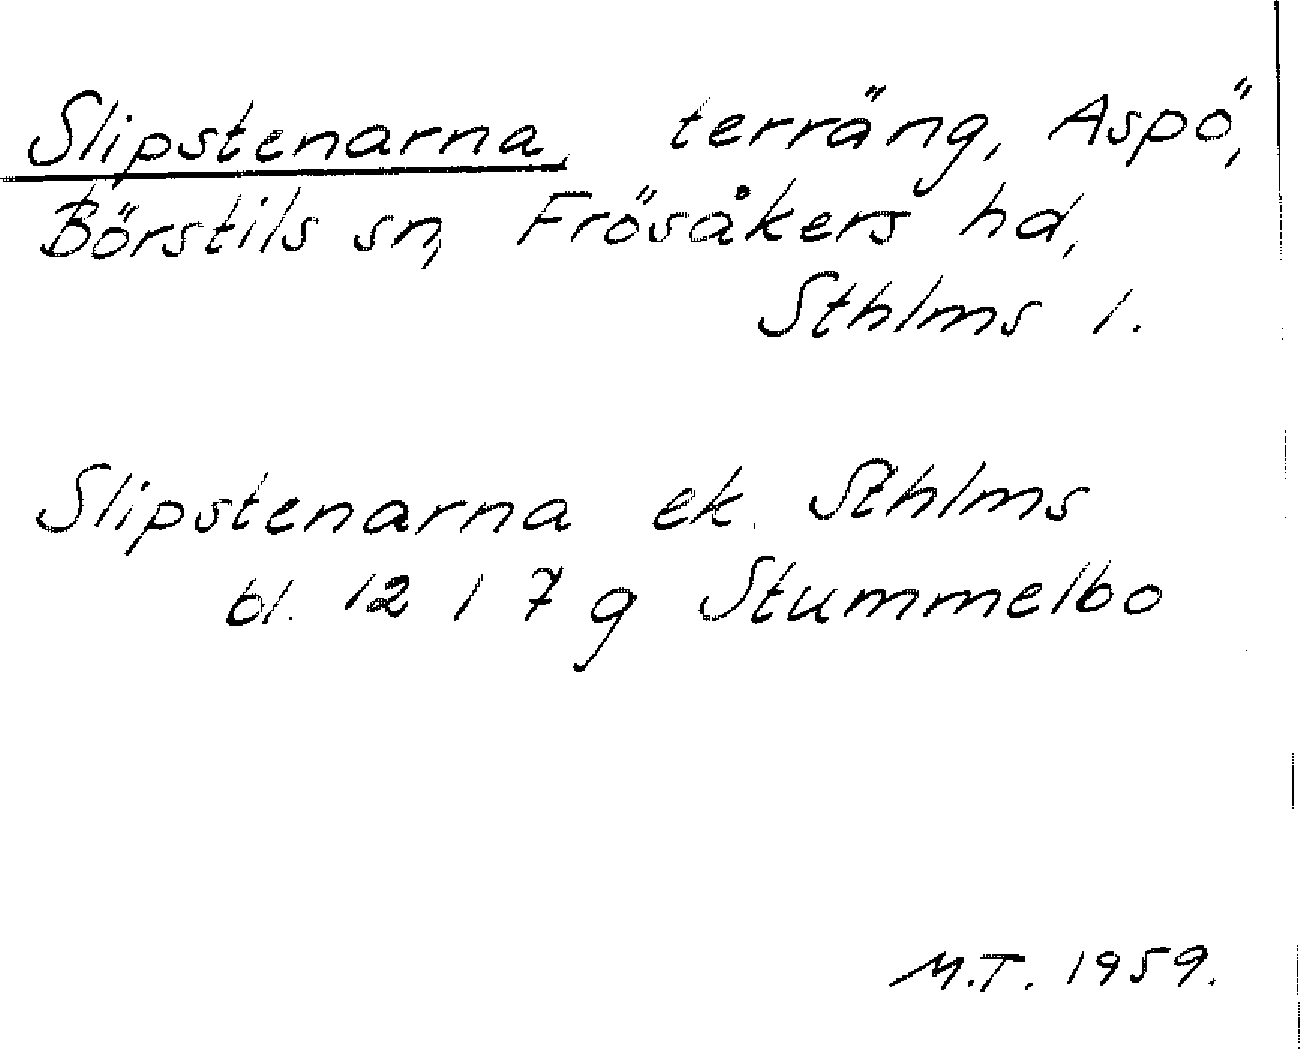 Slipstenarna, terräng, Aspö,
Börstils sn, Frösåkers hd,
Sthlms l.
Slipstenarna ek. Sthlms
bl. 12 I 7 g Stummelbo
M.T. 1959.